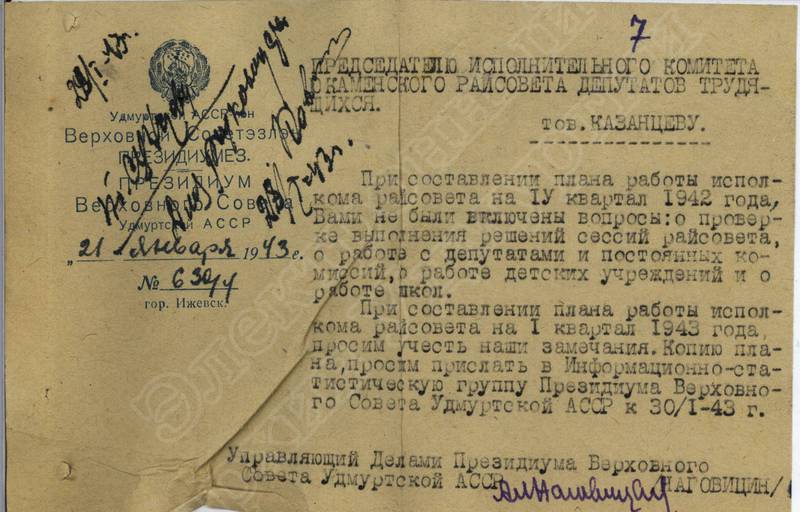 7
28/I-43г.
Удмуртской АССР-лэн
Верховной Советэзлэн
ПРЕЗИДИУМЕЗ.
ПРЕЗИДИУМ
Верховного Совета
Удмуртской АССР
„21" января 1943 г.
№
гор. Ижевск.
28/I-43г.
ПРЕДСЕДАТЕЛЮ ИСПОЛНИТЕЛЬНОГО КОМИТЕТА
СКАМЕНСКОГО РАЙСОВЕТА ДЕПУТАТОВ ТРУДЯ-
ЩИХСЯ.
тов. КАЗАНЦЕВУ.
При составлении плана работы испол-
кома райсовета на IУ квартал 1942 года,
Вами не были включены вопросы: о провер-
ке выполнения решений сессий райсовета,
о работе с депутатами и постоянных ко-
миссий, о работе детских учреждений и о
работе школ.
При составлении плана работы испол-
кома райсовета на I квартал 1943 года,
просим учесть наши замечания. Копию пла-
на, просим прислать в Информационно-ста-
тистическую группу Президиума Верховно-
го Совета Удмуртской АССР к 30/I-43 г.
Управляющий Делами Президиума Верховного
Совета Удмуртской АССР /НАГОВИЦИН/